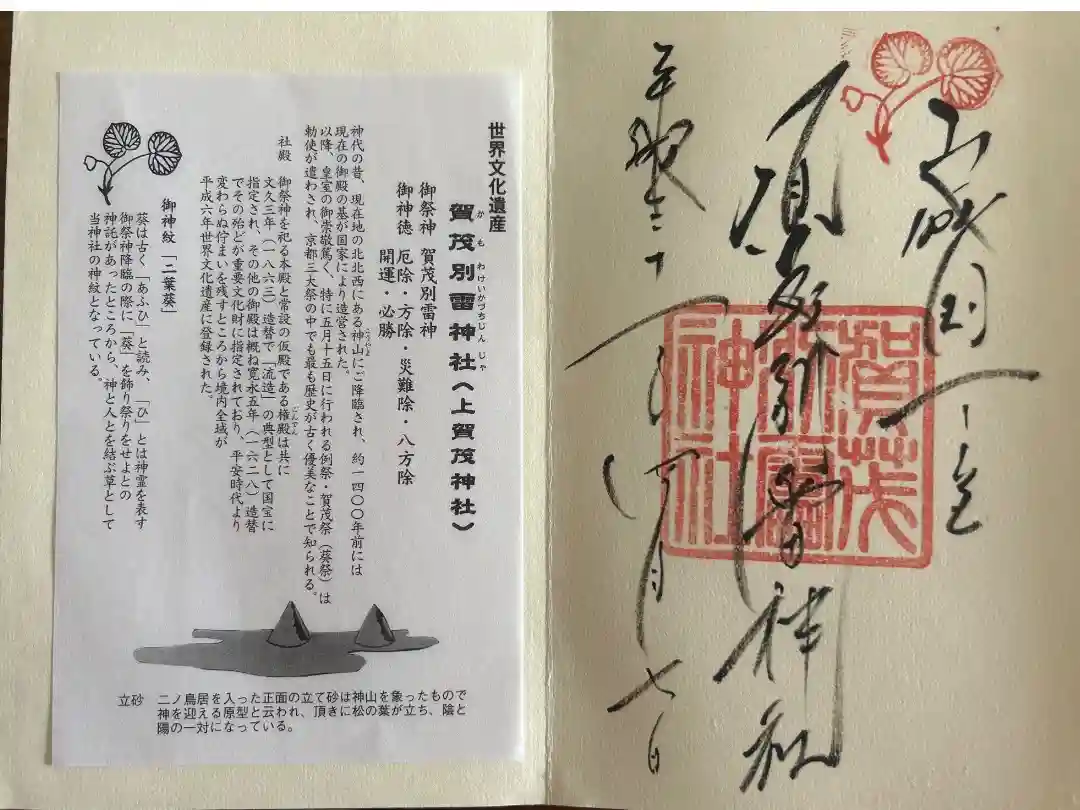 山城国一之宮
賀茂別雷神社
平成三十一年四月七日
賀茂
別雷
神社
世界文化遺産
賀茂別雷神社（上賀茂神社）
かもわけいかづちじんじゃ
御祭神　賀茂別雷神
御神徳　厄除・方除・災難除・八方除
開運・必勝
神代の昔、現在地の北北西にある神山にご降臨され、約一四〇〇年前には
こうやま
現在の御殿の基が国家により造営された。
以降、皇室の御崇敬篤く、特に五月十五日に行われる例祭・賀茂祭（葵祭）は
勅使が遣わされ、京都三大祭の中でも最も歴史が古く優美なことで知られる。
社殿　御祭神を祀る本殿と常設の仮殿である権殿は共に
ごんでん
文久三年（一八六三）造替で「流造」の典型として国宝に
指定され、その他の御殿は概ね寛永五年（一六二八）造替
でその殆どが重要文化財に指定されており、平安時代より
変わらぬ佇まいを残すところから境内全域が
平成六年世界文化遺産に登録された。
御神紋「二葉葵」
葵は古く「あふひ」と読み、「ひ」とは神霊を表す
御祭神降臨の際に「葵」を飾り祭りをせよとの
神託があったところから、神と人とを結ぶ草として
当神社の神紋となっている。
立砂　二ノ鳥居を入った正面の立て砂は神山を象ったもので
神を迎える原型と云われ、頂きに松の葉が立ち、陰と
陽の一対になっている。